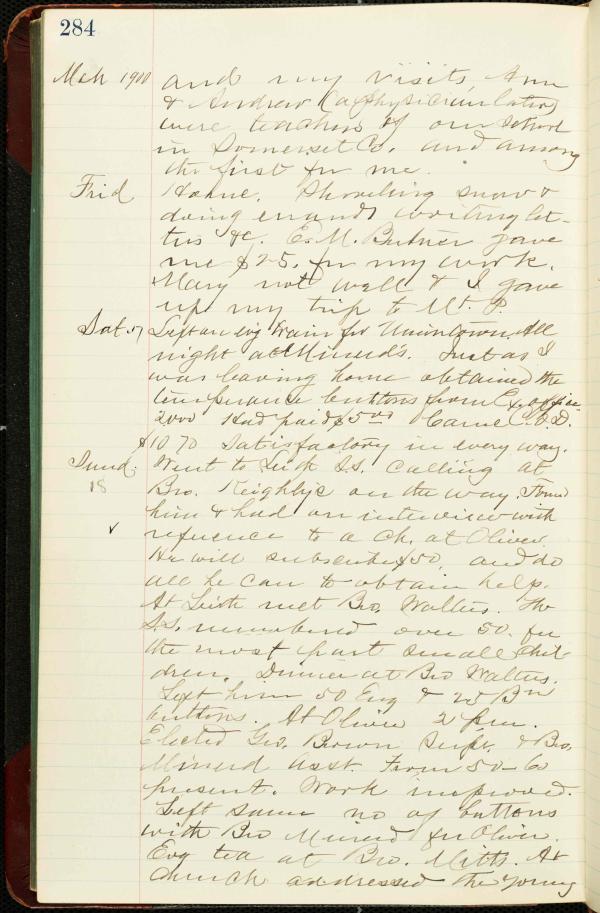 284
Mch 1900 and my visits, Ann
& Andrew (a physician later)
were teachers of our school
in Somerset Co. and among
the first for me.
Frid Home. Shoveling snow &
doing errands writing let-
ters &c. E. M. Butner gave
me $25. for my work.
Mary not well & I gave
up my trip to Mt. P.
Sat. 17 Left on evg train for Uniontown. All
night at Minerd's. Just as I
was leaving home obtained the
temperance buttons from Ex. office
2000 Had paid $5 00 Came C.O.D.
$10 70 Satisfactory in every way.
Sund. Went to Leith S.S. calling at
18 Bro. Keighly's on the way. Found
him & had an interview with
reference to a Ch. at Oliver.
He will subscribe $50, and do
all he can to obtain help.
At Leith met Bro. Walters. The
S.S. numbered over 50. for
the most part small chil
dren. Dinner at Bro Walters.
Left him 50 Eng & 25 Bn
buttons. At Oliver 2 p.m.
Elected Geo. Brown Supt. & Bro.
Minerd asst. From 50-60
present. Work improved.
Left same no of buttons
with Bro Minerd for Oliver.
Evg tea at Bro. Mitts. At
Church addressed the young